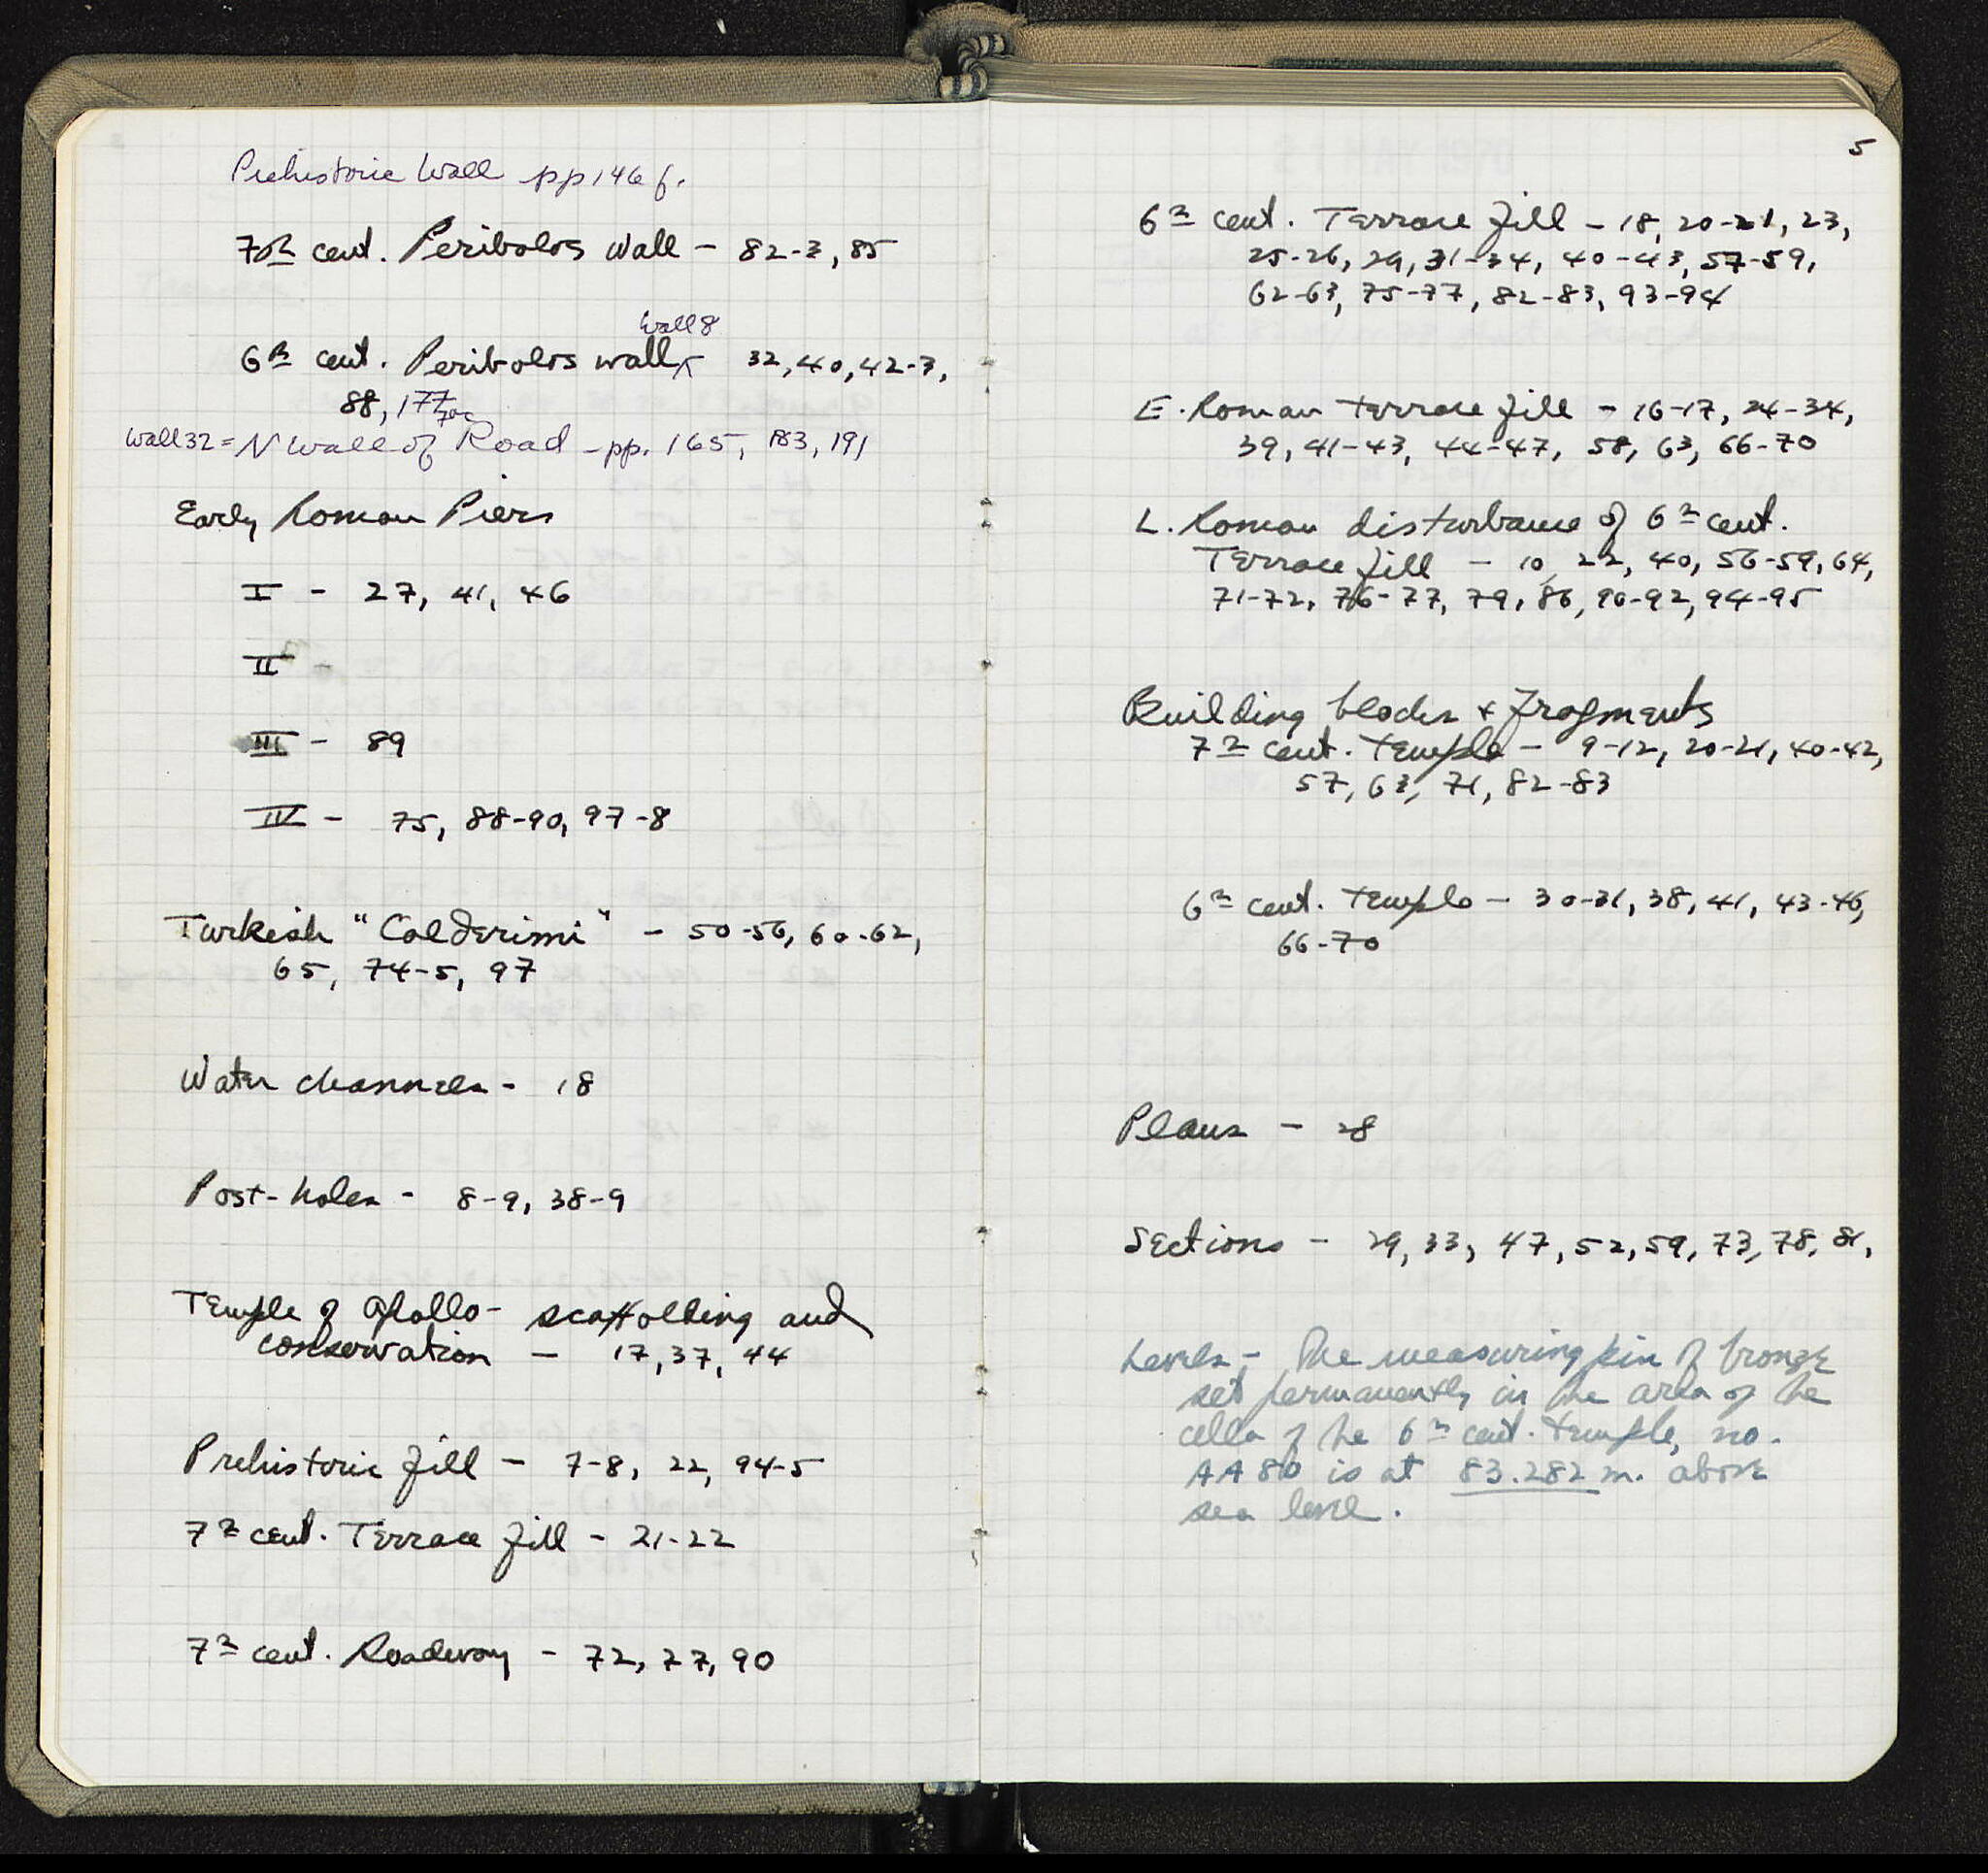 Prehistoric Wall pp 146 f.
7th cent. Peribolos Wall - 82-3, 85
Wall 8
6th cent. Peribolos wall 32, 40, 42-3,
88, 177
Wall 32 = N Wall of Road - pp. 165, 183, 191
Early Roman Piers
I - 27, 41, 46
II -
III - 89
IV - 75, 88-90, 97-8
Turkish "Calderimi" - 50-56, 60-62,
65, 74-5, 97
Water channels - 18
Post-holes - 8-9, 38-9
Temple of Apollo - scaffolding and
conservation - 17, 37, 44
Prehistoric fill - 7-8, 22, 94-5
7th cent. Terrace fill - 21-22
7th cent. Roadway - 72, 77, 90
5
6th cent. Terrace fill - 18, 20-21, 23,
25-26, 29, 31-34, 40-43, 57-59,
62-63, 75-77, 82-83, 93-94
E. Roman terrace fill - 16-17, 24-34,
39, 41-43, 44-47, 58, 63, 66-70
L. Roman disturbance of 6th cent.
Terrace fill - 10, 22, 40, 56-59, 64,
71-72, 76-77, 79, 86, 90-92, 94-95
Building blocks + fragments
7th cent. temple - 9-12, 20-21, 40-42,
57, 63, 71, 82-83
6th cent. temple - 30-31, 38, 41, 43-46,
66-70
Plans - 28
Sections - 29, 33, 47, 52, 59, 73, 78, 81,
Levels - The measuring pin of bronze
set permanently in the area of the
cella of the 6th cent. temple, no.
AA 80 is at 83.282 m. above
sea level.